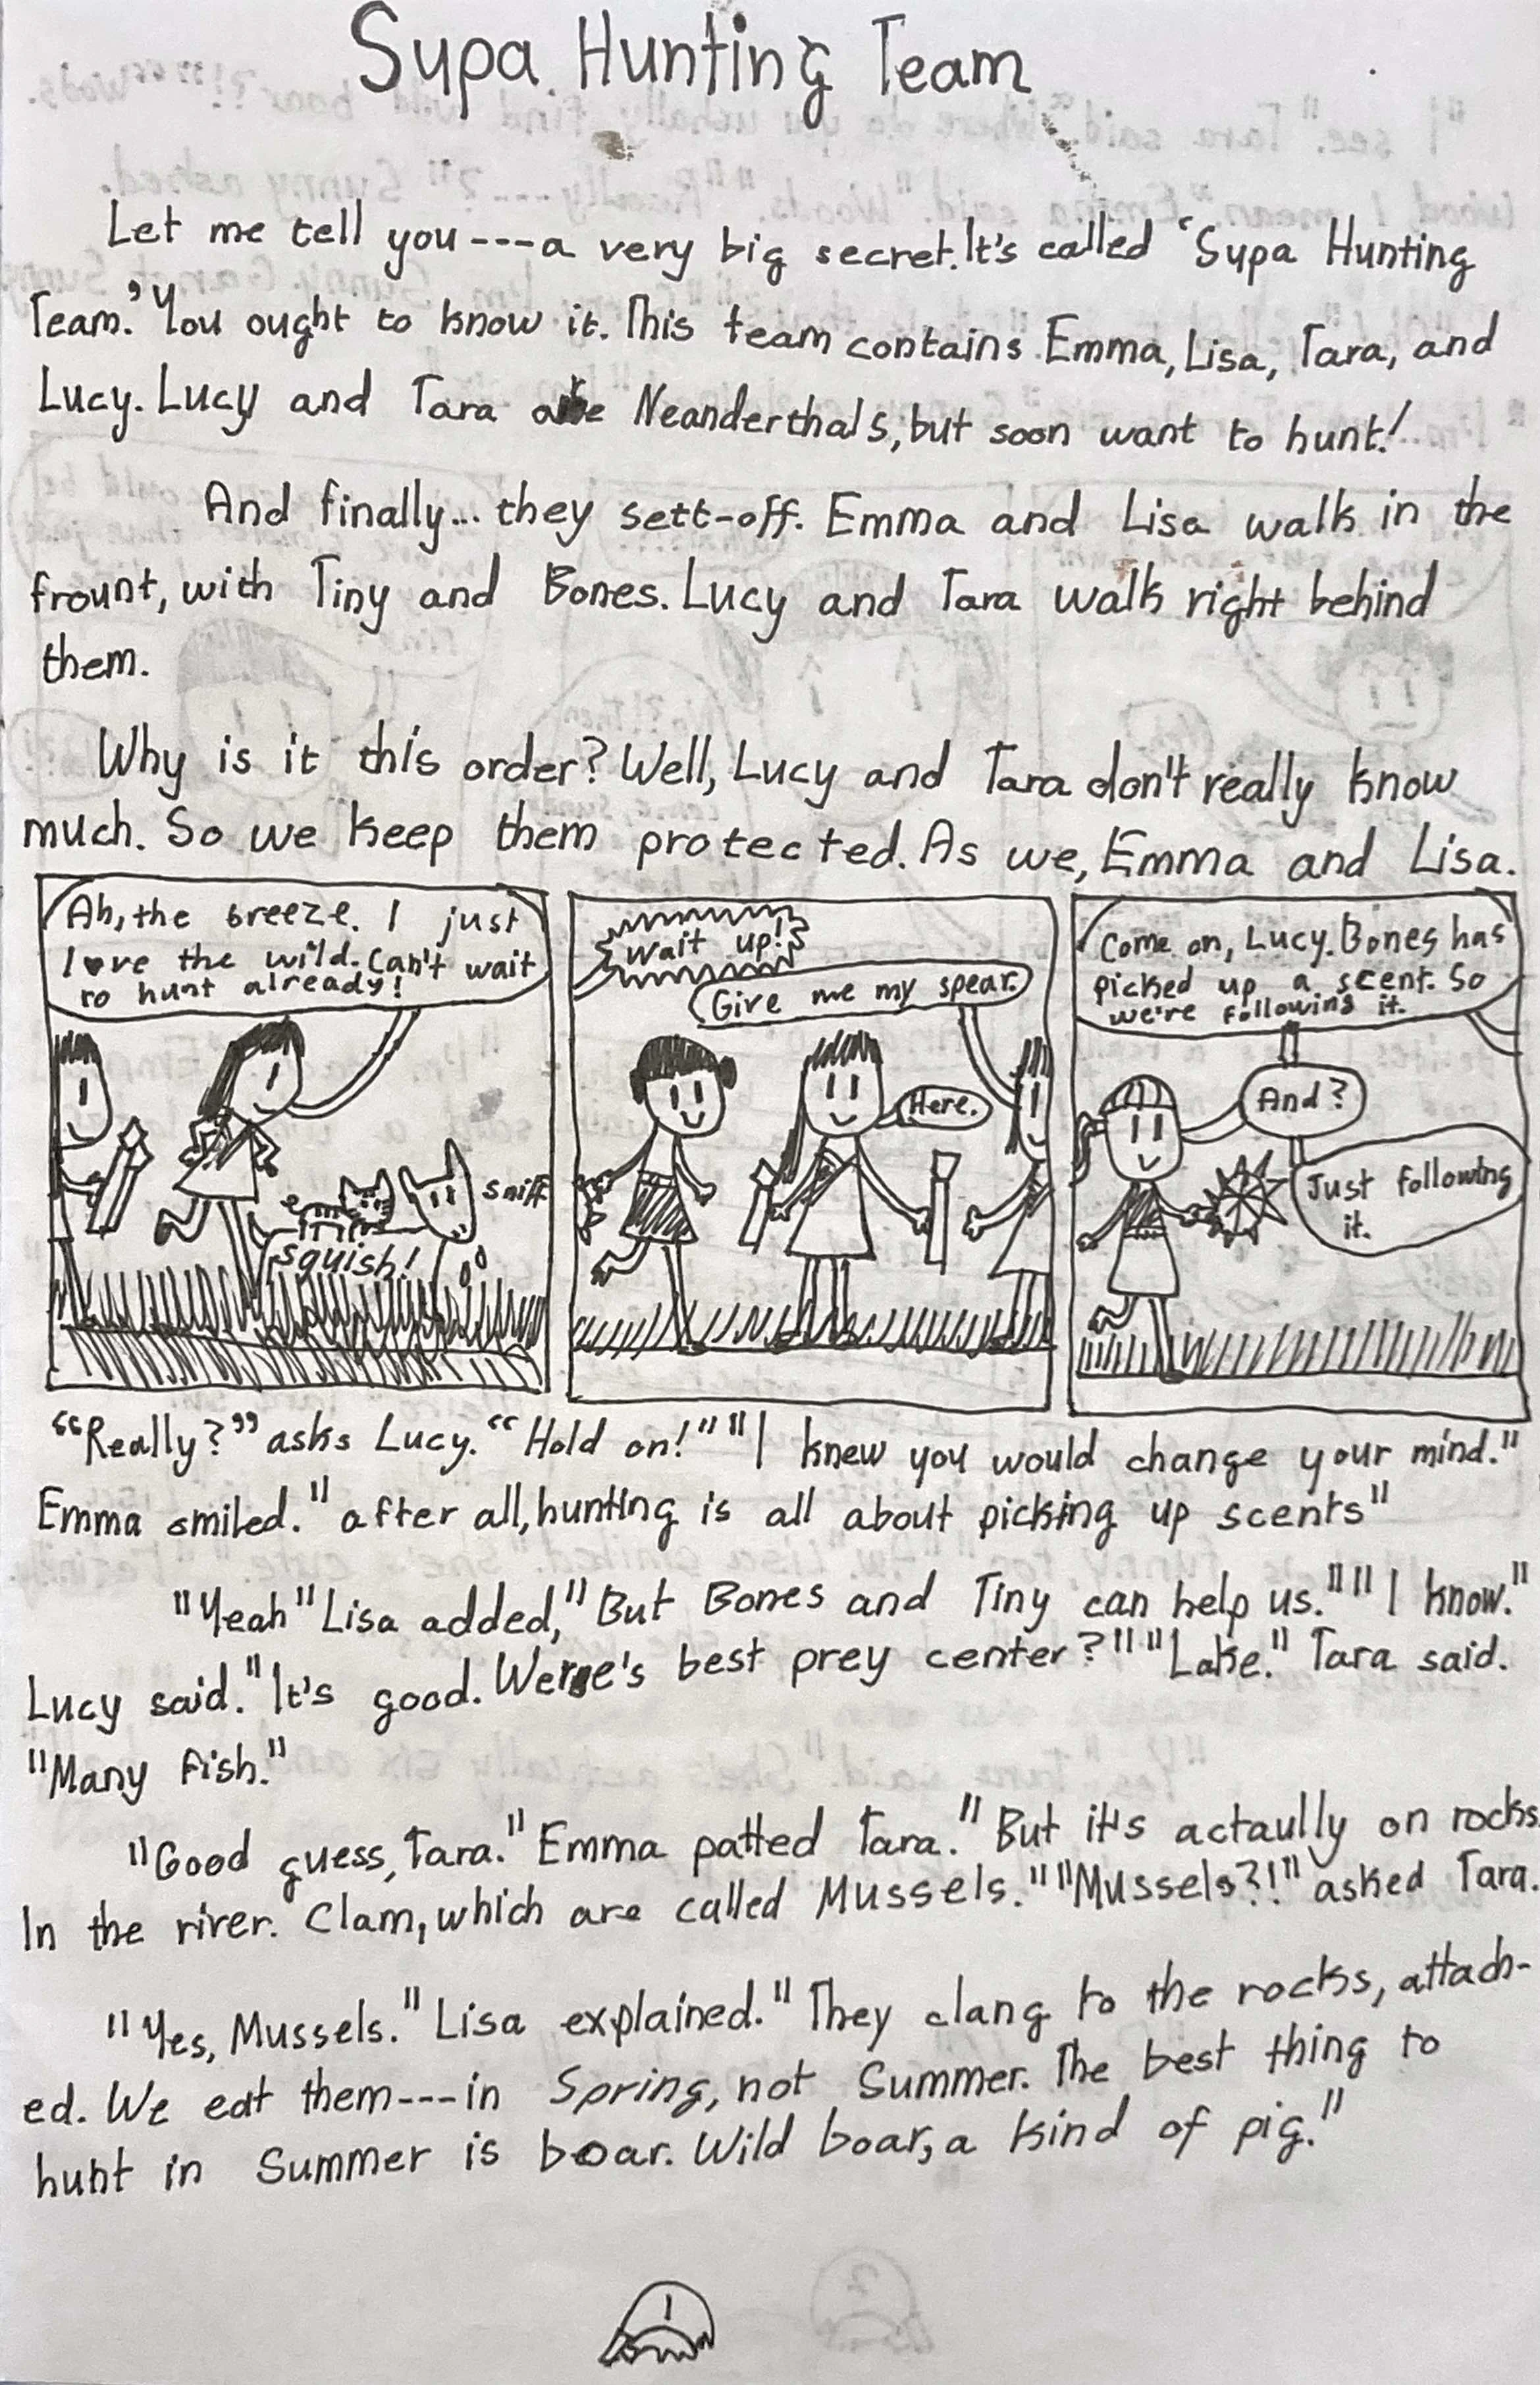 Supa Hunting Team
Let me tell you----a very big secret. It's called 'Supa Hunting
Team.' You ought to know it. This team contains Emma, Lisa, Tara, and
Lucy. Lucy and Tara are Neanderthals, but soon want to hunt!
And finally... they sett-off. Emma and Lisa walk in the
frount, with Tiny and Bones. Lucy and Tara walk right behind
them.
Why is it this order? Well, Lucy and Tara don't really know
much. So we keep them protected. As we, Emma and Lisa.
Ah, the breeze. I just
love the wild. Can't wait
to hunt already!
sniff
squish!
Wait up!
Give me my spear.
Here.
Come on, Lucy. Bones has
picked up a scent. So
we're following it.
And?
Just following
it.
"Really?" asks Lucy. "Hold on!" "I knew you would change your mind."
Emma smiled. "after all, hunting is all about picking up scents"
"Yeah" Lisa added, "But Bones and Tiny can help us." "I know."
Lucy said. "It's good. Were's best prey center?" "Lake." Tara said.
"Many fish."
"Good guess, Tara." Emma patted Tara. "But it's actaully on rocks.
In the river. Clam, which are called Mussels." "Mussels?!" asked Tara.
"Yes, Mussels." Lisa explained. "They clang to the rocks, attach-
ed. We eat them---in Spring, not Summer. The best thing to
hunt in Summer is boar. Wild boar, a kind of pig."
1